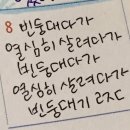 8 빈둥대다가
열심히 살려다가
빈둥대다가
열심히 살려다가
빈둥대기 르ㅈ